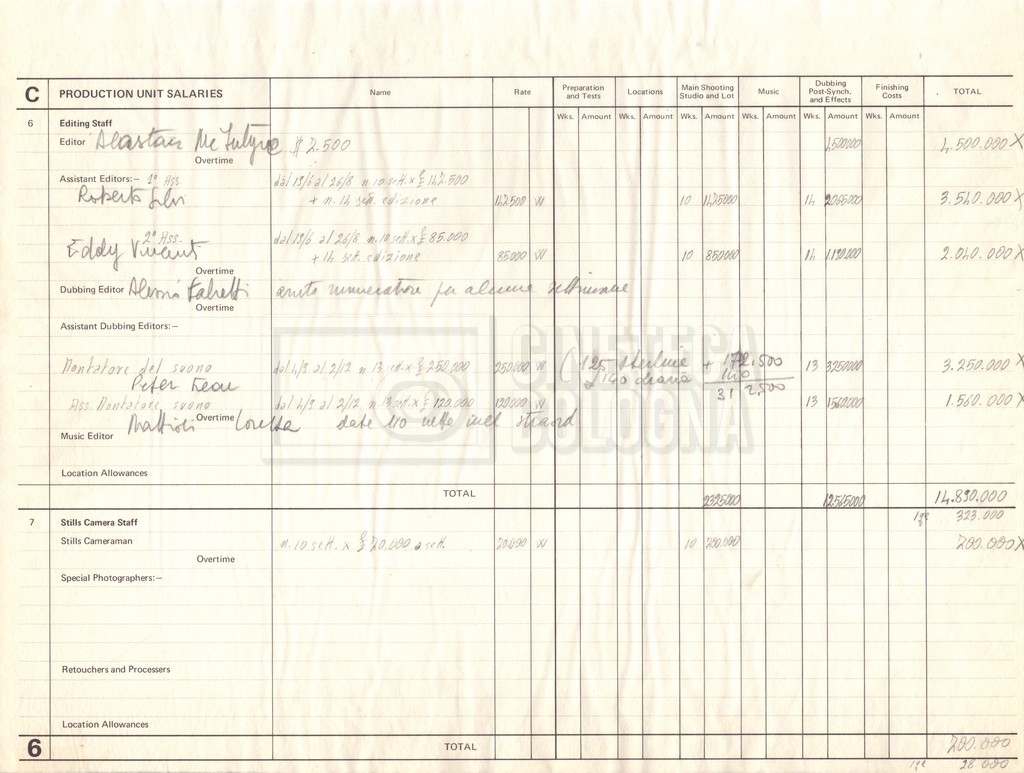 C PRODUCTION UNIT SALARIES Name Rate Preparation and Tests Locations Main Shooting Studio and Lot Music Dubbing Post-Synch. and Effects Finishing Costs TOTAL
Wks. Amount Wks. Amount Wks. Amount Wks. Amount Wks. Amount Wks. Amount
6 Editing Staff
Editor Alastair Mc Intyre $ 2.500 4500000 4.500.000 X
Overtime
Assistant Editors:— 1º Ass dal 19/6 al 26/8 n. 10 sett. x £ 142.500
Roberto Silvi + n. 14 sett. edizione 142.500 W 10 1425000 14 3.540.000 X
2º Ass. dal 19/6 al 26/8 n. 10 sett. x £ 85.000
Eddy Vincent + 14 sett. edizione 85.000 W 10 850000 14 1190000 2.040.000 X
Overtime
Dubbing Editor per alcune settimane
Overtime
Assistant Dubbing Editors:—
(125 sterline + 172.500
Montatore del suono dal 4/9 al 2/12 n 13 sett. x £ 250.000 250.000 W 13 3250000 3.250.000 X
Peter 140 diaria 140
312,500
Ass. Montatore suono dal 4/9 al 2/12 n 13 sett. x £ 120.000 120.000 W 13 1560000 1.560.000 X
Mattioli Overtime Loretta date 110 nette incl straord
Music Editor
Location Allowances
TOTAL 12565000 14.890.000
CINETECA
BOLOGNA
7 Stills Camera Staff 323.000
Stills Cameraman n. 10 sett. x £ 20.000 a sett. 20.000 W 10 200.000 200.000 X
Overtime
Special Photographers:—
Retouchers and Processers
Location Allowances
6 TOTAL 200.000
28.000